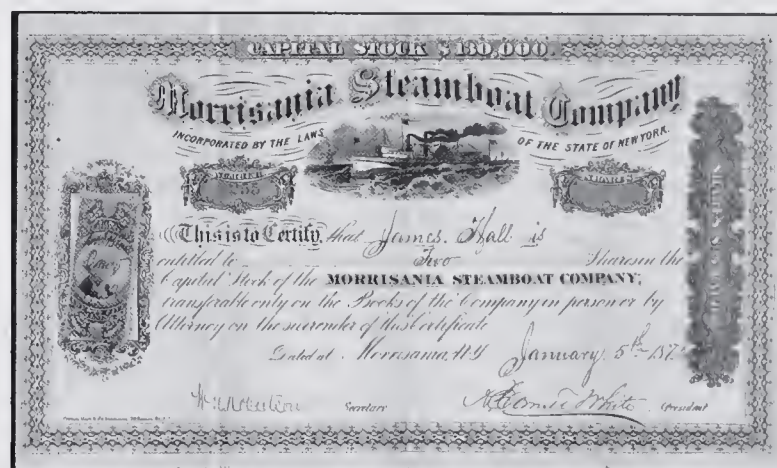 CAPITAL STOCK $130,000.
Morrisania Steamboat Company
INCORPORATED BY THE LAWS OF THE STATE OF NEW YORK.
NUMBER SHARES
This is to Certify, that James Hall is
entitled to Two Shares in the
Capital Stock of the MORRISANIA STEAMBOAT COMPANY,
transferable only on the Books of the Company in person or by
Attorney on the surrender of this Certificate
Dated at Morrisania, N.Y. January 5th 187
Secretary White President